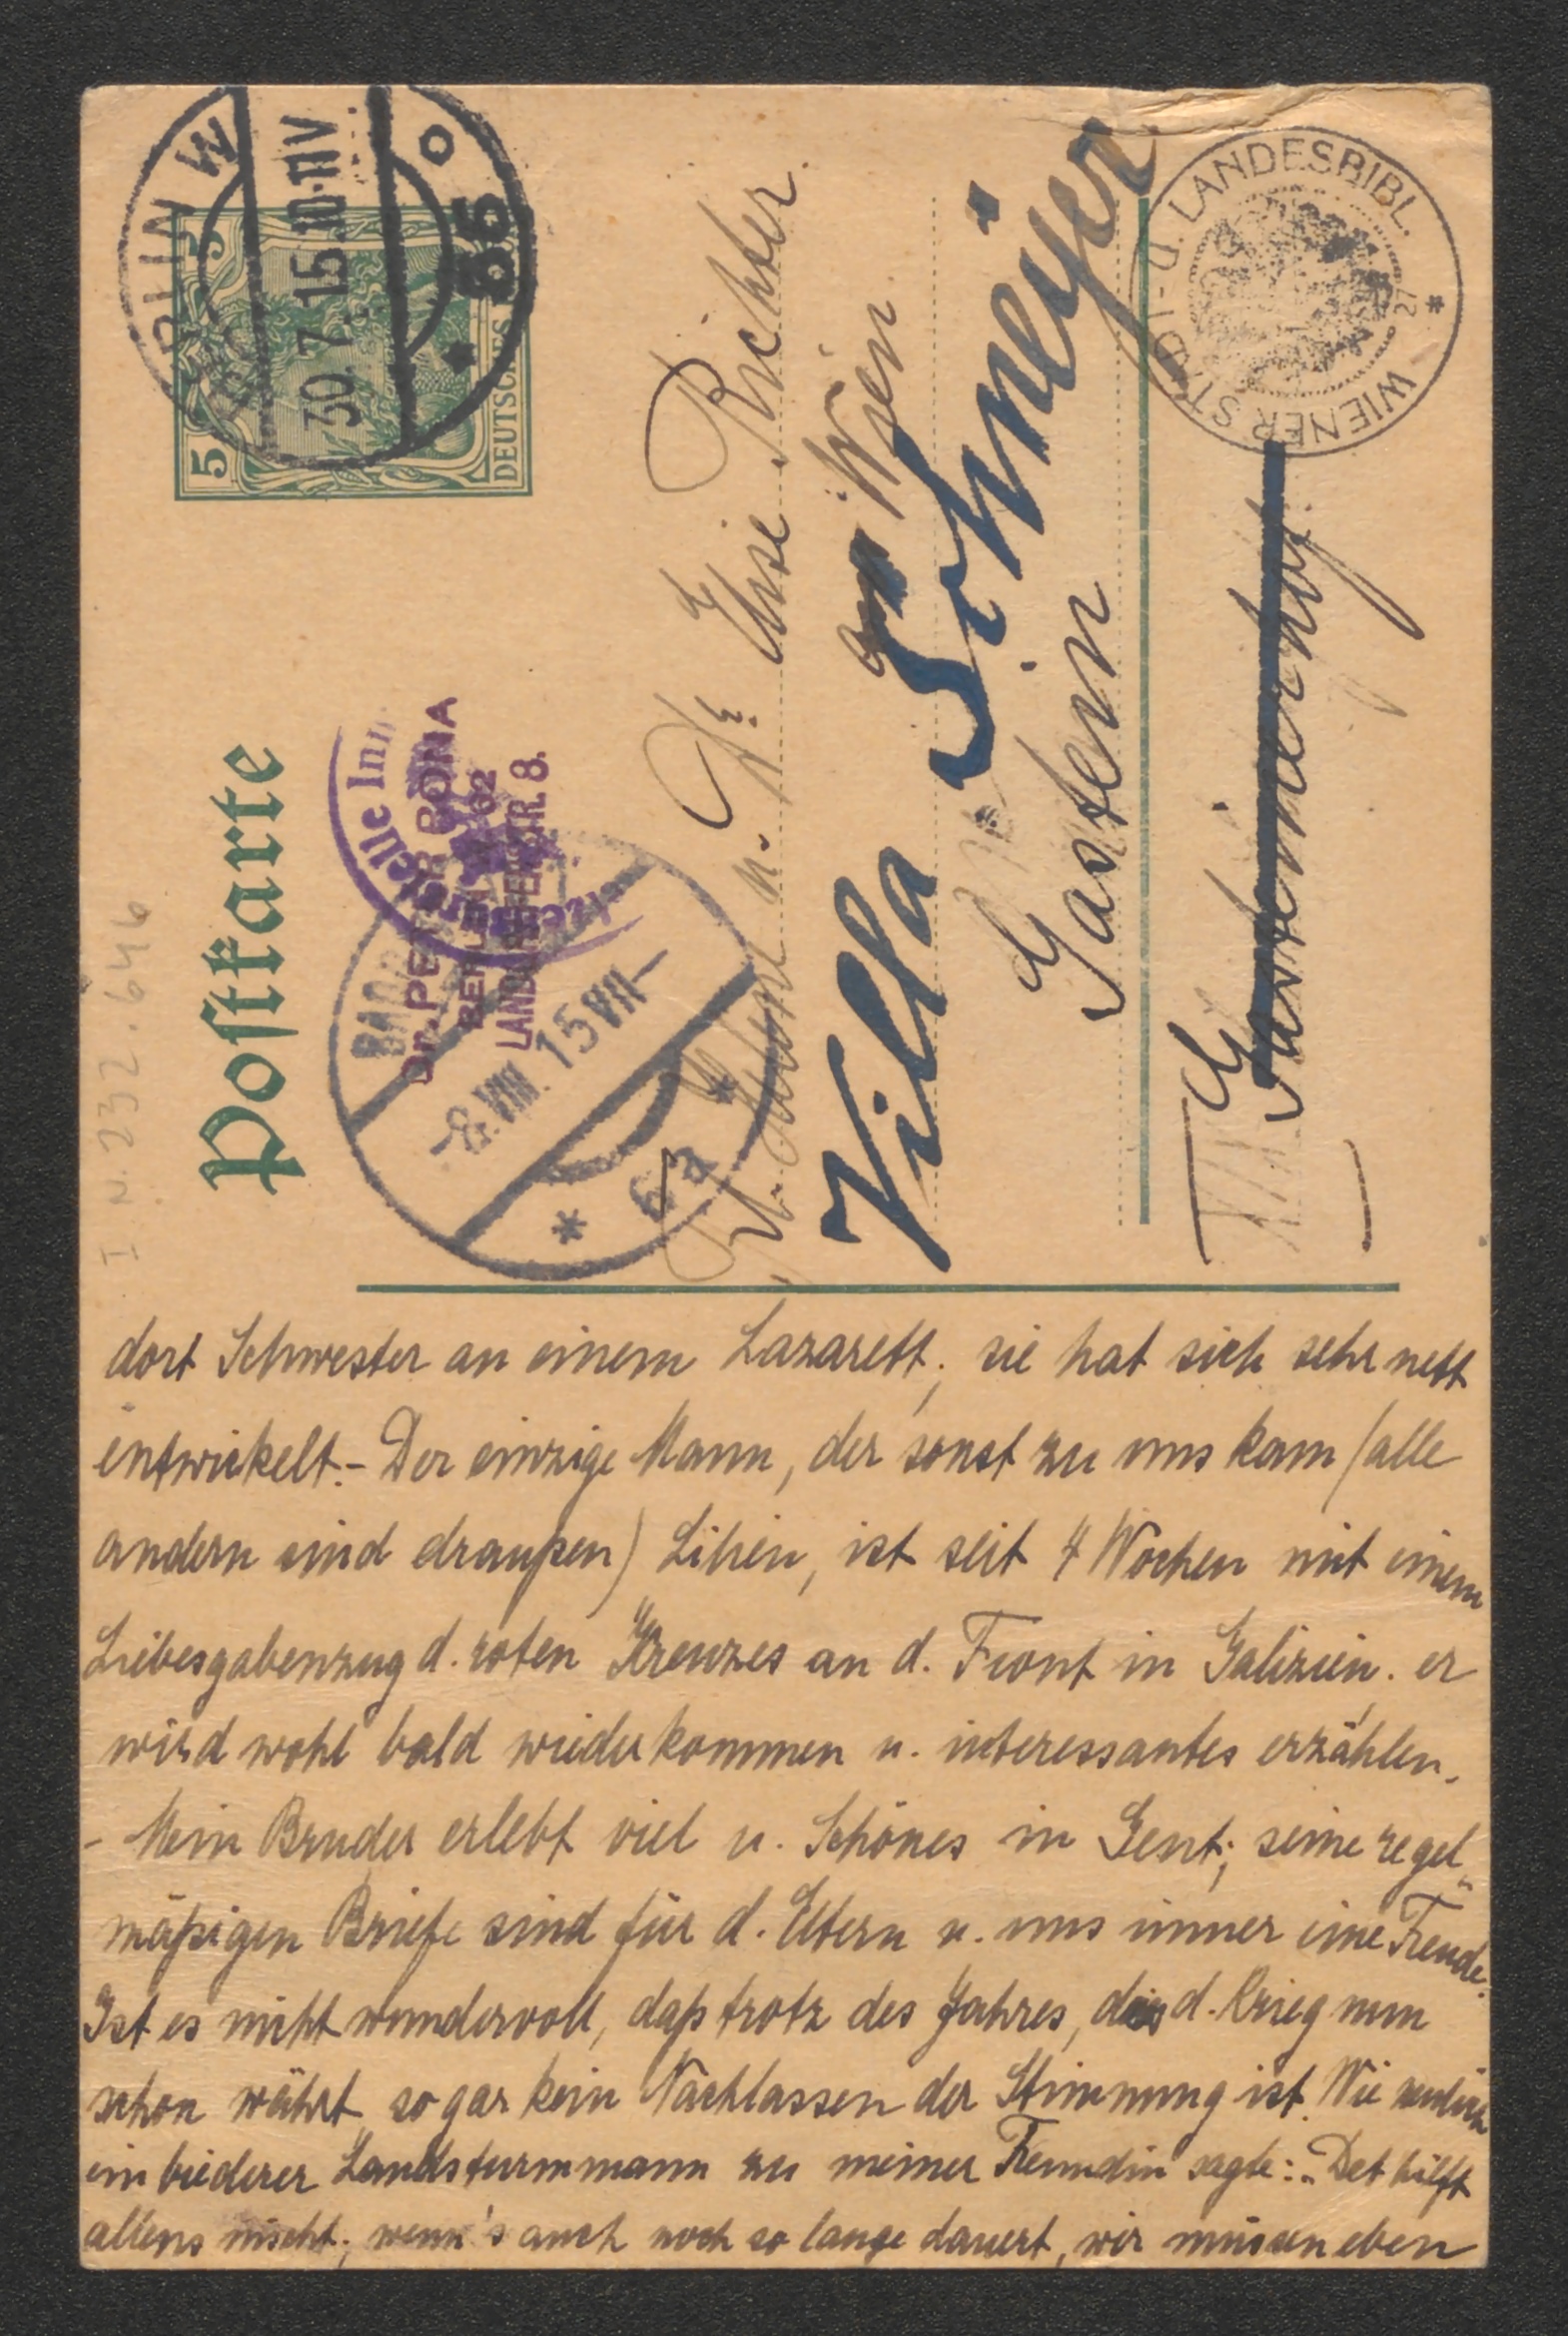 I.N. 232.646
Postkarte
5 5
DEUTSCHES
BERLIN W
30.7.15.10-11V
o
* 85
Dr. PETER BONA
BERLIN 62
LANDGRAFENSTR. 8.
-8.VIII.15 VII-
* 63 *
u. Dr. Elise Richter
Wien
Villa Schneijer
Gastein
Gasteinerhof
WIENER STADT- U. LANDESBIBL.
27 *
dort Schwester an einem Lazarett; sie hat sich sehr nett
entwickelt.- Der einzige Mann, der sonst zu uns kam (alle
andern sind draußen) Lihen, ist seit 4 Wochen mit einem
Liebesgabenzug d. roten Kreuzes an d. Front in Galizien. er
wird wohl bald wiederkommen u. interessantes erzählen.
- Mein Bruder erlebt viel u. Schönes in Gent; seine regel„
mäßigen Briefe sind für d. Eltern u. uns immer eine Freude.
Ist es nicht wundervoll, daß trotz des Jahres, das d. Krieg nun
schon währt, so gar kein Nachlassen der Stimmung ist. Wie neulich
ein biederer Landsturmmann zu meiner Freundin sagte: „Det hilft
allens nischt; wenn's auch noch so lange dauert, wir müssen eben